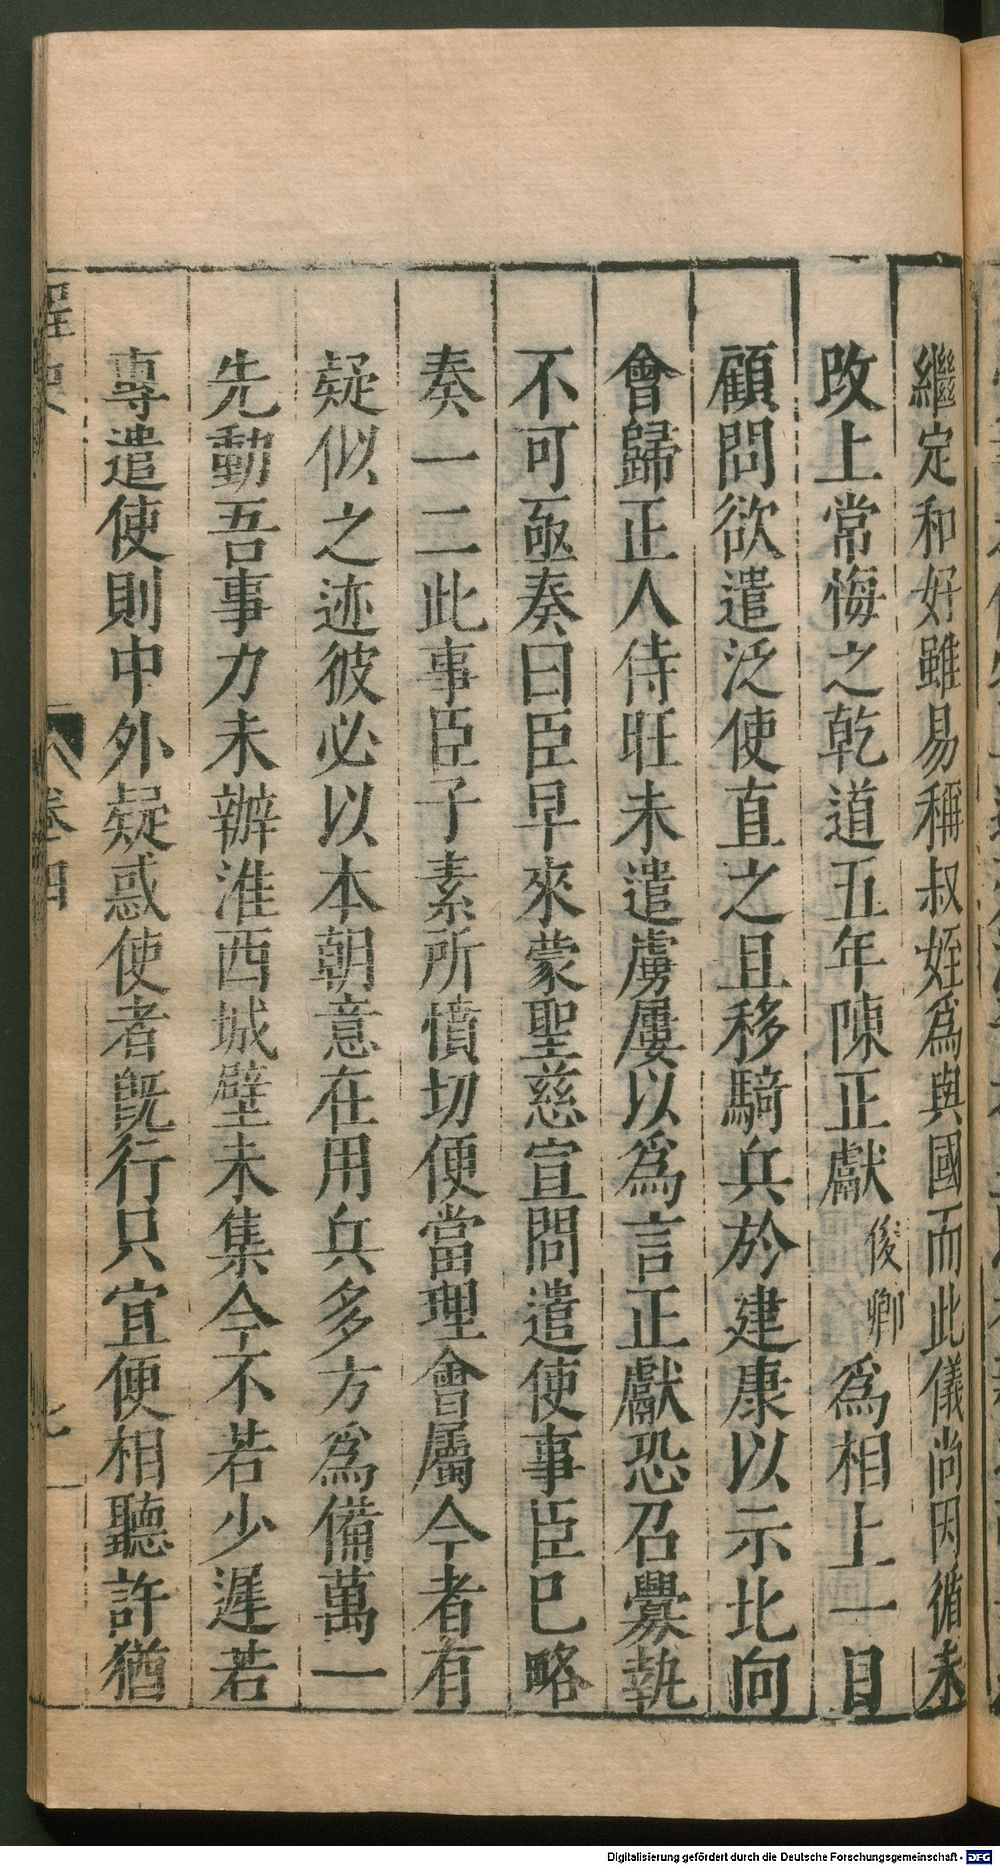 繼定和好雖易稱叔姪爲與國而此儀尚因循未
攺上常悔之乾道五年陳正獻俊卿爲相上一日
顧問欲遣泛使直之且移騎兵於建康以示北向
會歸正人侍旺未遣虜屢以爲言正獻恐召釁執
不可亟奏曰臣早來蒙聖慈宣問遣使事臣已略
奏一二此事臣子素所憤切便當理會屬今者有
疑似之迹彼必以本朝意在用兵多方爲備萬一
先動吾事力未辦淮西城壁未集今不若少遲若
專遣使則中外疑惑使者旣行只宜便相聽許猶
桯史
卷四
Digitalisierung gefördert durch die Deutsche Forschungsgemeinschaft - DFG